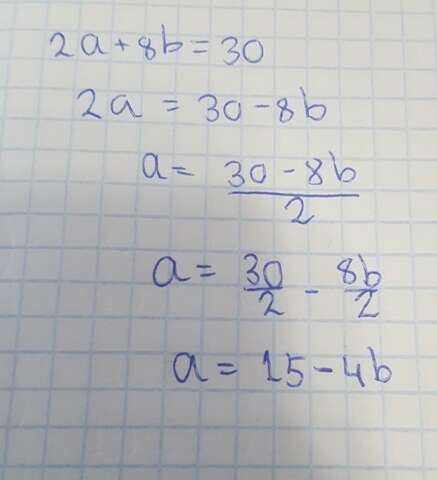 2a+8b=30
2a = 30-8b
a = \frac{30-8b}{2}
a = \frac{30}{2} - \frac{8b}{2}
a = 15-4b